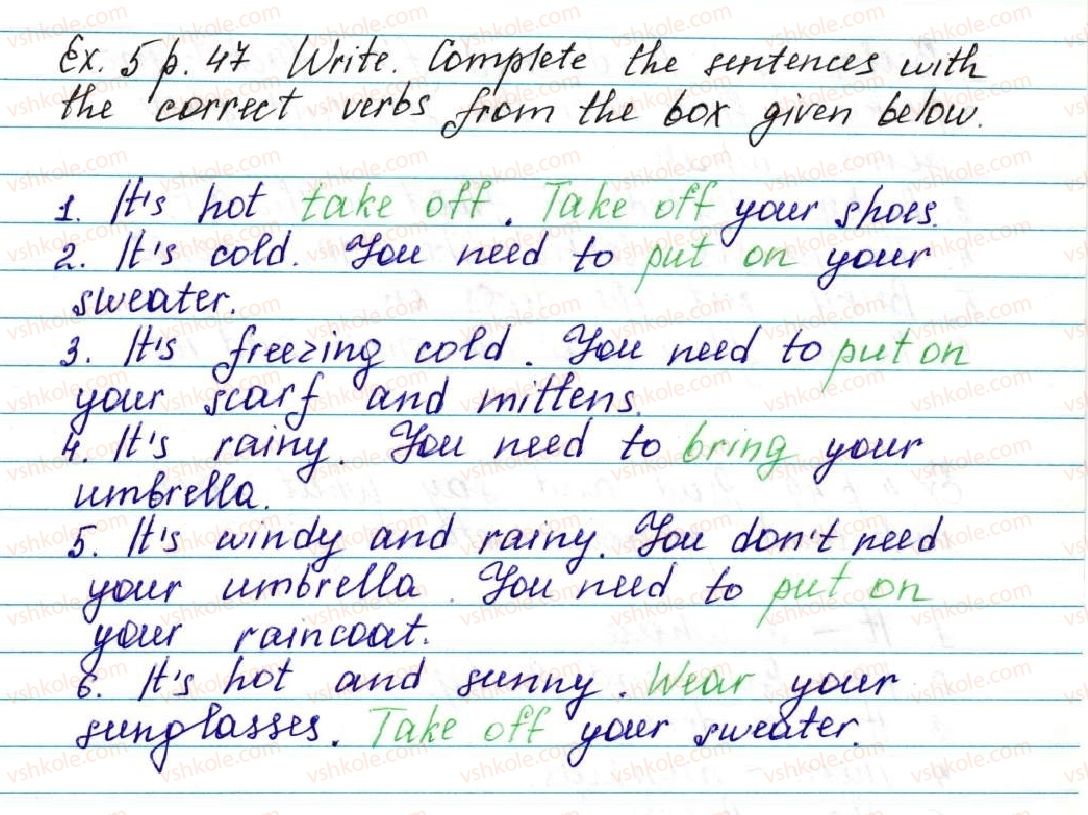 Ex. 5 p. 47 Write. Complete the sentences with
the correct verbs from the box given below.
1. It's hot take off. Take off your shoes.
2. It's cold. You need to put on your
sweater.
3. It's freezing cold. You need to put on
your scarf and mittens.
4. It's rainy. You need to bring your
umbrella.
5. It's windy and rainy. You don't need
your umbrella. You need to put on
your raincoat.
6. It's hot and sunny. Wear your
sunglasses. Take off your sweater.